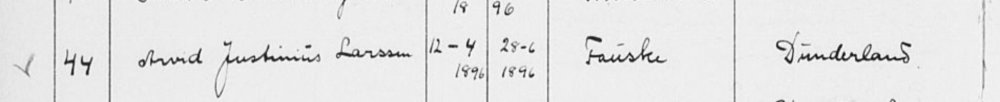 18 96
44 Arvid Justinius Larssen 12-4 28-6 Fauske Dunderland
1896 1896